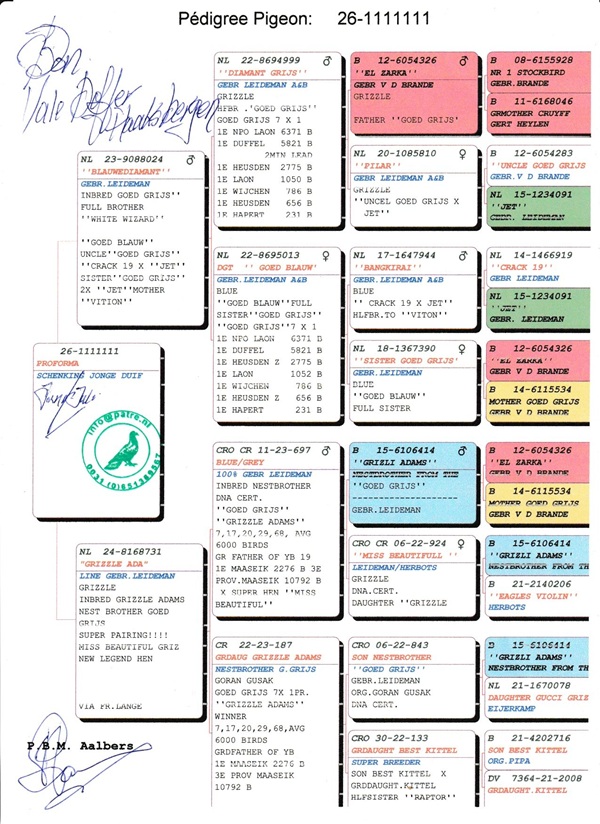 Pédigree Pigeon: 26-1111111
Ben.
NL 23-9088024 ♂
''BLAUWEDIAMANT''
GEBR.LEIDEMAN
INBRED GOED GRIJS''
FULL BROTHER
''WHITE WIZARD''
''GOED BLAUW''
UNCLE''GOED GRIJS''
''CRACK 19 X ''JET''
SISTER''GOED GRIJS''
2X ''JET''MOTHER
''VITION''
26-1111111
PROFORMA
SCHENKING JONGE DUIF
info@patre.nl
NL 24-8168731
"GRIZZLE ADA"
LINE GEBR.LEIDEMAN
GRIZZLE
INBRED GRIZZLE ADAMS
NEST BROTHER GOED
GRIJS
SUPER PAIRING!!!!
MISS BEAUTIFUL GRIZ
NEW LEGEND HEN
VIA FR.LANGE
P.B.M. Aalbers
NL 22-8694999 ♂
''DIAMANT GRIJS''
GEBR LEIDEMAN A&B
GRIZZLE
HFBR .'GOED GRIJS''
GOED GRIJS 7 X 1
1E NPO LAON 6371 B
1E DUFFEL 5821 B
2MIN LEAD
1E HEUSDEN 2775 B
1E LAON 1050 B
1E WIJCHEN 786 B
1E HEUSDEN 656 B
1E HAPERT 231 B
NL 22-8695013 ♀
DGT '' GOED BLAUW'
GEBR.LEIDEMAN A&B
BLUE
''GOED BLAUW''FULL
SISTER''GOED GRIJS''
''GOED GRIJS''7 X 1
1E NPO LAON 6371 B
1E DUFFEL 5821 B
1E HEUSDEN Z 2775 B
1E LAON 1052 B
1E WIJCHEN 786 B
1E HEUSDEN Z 656 B
1E HAPERT 231 B
CRO CR 11-23-697 ♂
BLUE/GREY
100% GEBR LEIDEMAN
INBRED NESTBROTHER
DNA CERT.
''GOED GRIJS''
''GRIZZLE ADAMS''
7,17,20,29,68, AVG
6000 BIRDS
GR FATHER OF YB 19
1E MAASEIK 2276 B 3E
PROV.MAASEIK 10792 B
X SUPER HEN ''MISS
BEAUTIFUL''
CR 22-23-187
GRDAUG GRIZZLE ADAMS
NESTBROTHER G.GRIJS
GORAN GUSAK
GOED GRIJS 7X 1PR.
''GRIZZLE ADAMS''
WINNER
7,17,20,29,68,AVG
6000 BIRDS
GRDFATHER OF YB
1E MAASEIK 2276 B
3E PROV MAASEIK
10792 B
B 12-6054326 ♂
''EL ZARKA''
GEBR V D BRANDE
GRIZZLE
FATHER ''GOED GRIJS'
NL 20-1085810 ♀
''PILAR''
GEBR LEIDEMAN A&B
GRIZZLE
''UNCEL GOED GRIJS X
JET''
NL 17-1647944 ♂
''BANGKIRAI''
GEBR.LEIDEMAN A&B
BLUE
'' CRACK 19 X JET''
HLFBR.TO ''VITON''
NL 18-1367390 ♀
''SISTER GOED GRIJS'
GEBR.LEIDEMAN
BLUE
''GOED BLAUW''
FULL SISTER
B 15-6106414 ♂
''GRIZLI ADAMS''
NESTBROTHER FROM THE
''GOED GRIJS''
--------------------
GEBR.LEIDEMAN
CRO CR 06-22-924 ♀
''MISS BEAUTIFULL ''
LEIDEMAN/HERBOTS
GRIZZLE
DNA.CERT.
DAUGHTER ''GRIZZLE
CRO 06-22-843
SON NESTBROTHER
''GOED GRIJS''
GEBR.LEIDEMAN
ORG.GORAN GUSAK
DNA CERT.
CRO 30-22-133
GRDAUGHT BEST KITTEL
SUPER BREEDER
SON BEST KITTEL X
GRDDAUGHT.KITTEL
HLFSISTER ''RAPTOR''
B 08-6155928
NR 1 STOCKBIRD
GEBR.BRANDE
B 11-6168046
GRMOTHER CRUYFF
GERT HEYLEN
B 12-6054283
''UNCLE GOED GRIJS
GEBR.V D BRANDE
NL 15-1234091
''JET''
GEBR. LEIDEMAN
NL 14-1466919
''CRACK 19''
GEBR LEIDEMAN
NL 15-1234091
''JET''
GEBR. LEIDEMAN
B 12-6054326
''EL ZARKA''
GEBR V D BRANDE
B 14-6115534
MOTHER GOED GRIJS
GEBR V D BRANDE
B 12-6054326
''EL ZARKA''
GEBR V D BRANDE
B 14-6115534
MOTHER GOED GRIJS
GEBR V D BRANDE
B 15-6106414
''GRIZLI ADAMS''
NESTBROTHER FROM TH
B 21-2140206
''EAGLES VIOLIN''
HERBOTS
B 15-6106414
''GRIZLI ADAMS''
NESTBROTHER FROM TH
NL 21-1670078
DAUGHTER GUCCI GRIZ
EIJERKAMP
B 21-4202716
SON BEST KITTEL
ORG.PIPA
DV 7364-21-2008
GRDAUGHT.KITTEL